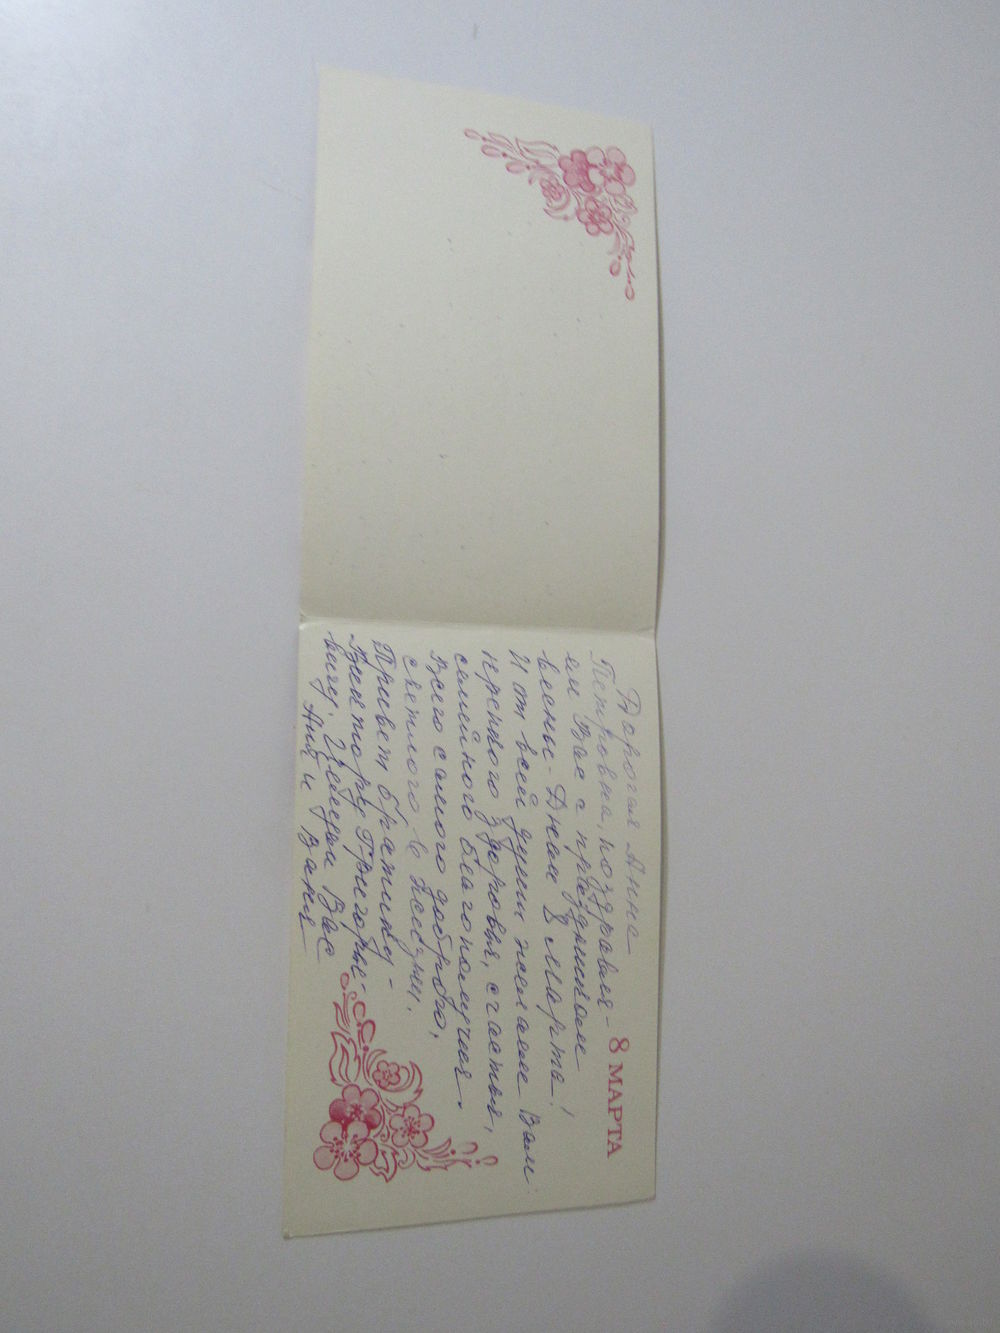 8 МАРТА
Дорогая Анна
Петровна, поздравля-
ем Вас с праздником
весны - Днем 8 Марта!
И от всей души желаем Вам
крепкого здоровья, счастья,
семейного благополучия.
Всего самого доброго,
светлого в жизни.
Привет братику -
Виктору Григорье-
вичу. Целуем Вас
Аня и Ваня